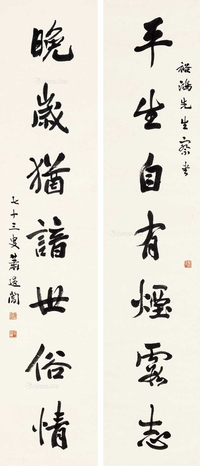 鴻先生察
平生自有煙霞志
晚歲猶諳世俗情
七十三叟蕭退闇